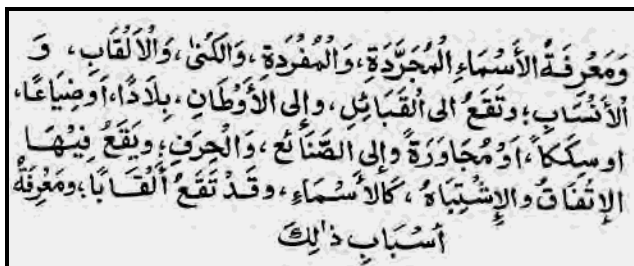 وَمَعْرِفَةُ الأَسْمَاءِ المُجَرَّدَةِ، وَالْمُفْرَدَةِ، وَالْكُنىٰ، وَالْاَلْقَابِ، وَ
اْلأَنْسَابِ؛ وَتَقَعُ الى الْقَبَائِلِ، وإلى الأَوْطَانِ، بِلَادًا، اَوضِيَاعًا،
اوسِكَكاً، اَوْ مُجَاوَرَةً وإلى الصَّنَائعِ، وَالْحِرَفِ؛ ويَقَعُ فِيْهَا
الإتِّفَاقُ والإشْتِبَاهُ، كَالاَسْمَاءِ، وقَدْ تَقَعُ أَلْقَابًا؛ ومَعْرِفَةُ
أَسْبَابِ ذٰلِكَ